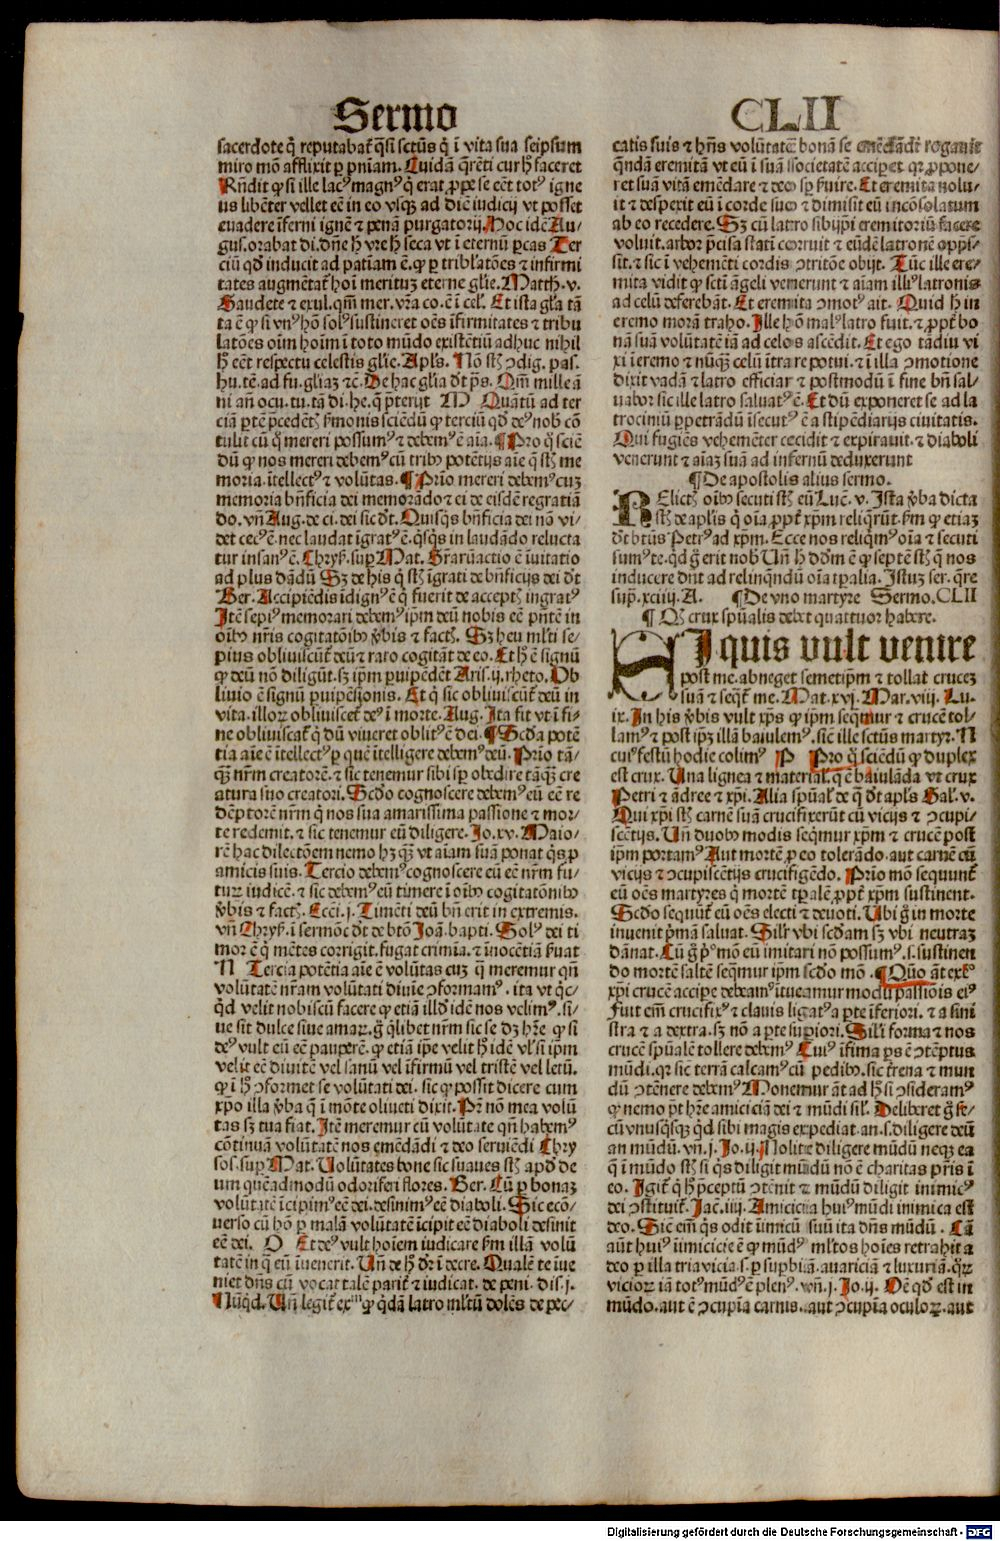 Sermo
CLII
sacerdote q̄ reputabat᷑ q̄si sctūs q̄ ī vita sua seipsum
miro mō afflixit ꝑ pn̄iam. Cuidā q̄rēti cur ꝧ faceret
Rn̄dit ꝙ si ille lacꝰ magnꝰ q̄ erat ꝓpe se eēt totꝰ igne
us libēter vellet eē in eo vsqꝫ ad diē iudicij vt posset
euadere īferni ignē ⁊ penā purgatorij. Hoc idē Au-
gus. orabat di. dn̄e ꝧ vre ꝧ seca vt ī eternū ꝑcas Ter
ciū qd̄ inducit ad patīam ē. ꝙ ꝑ tribl̄atōes ⁊ infirmi
tates augmētat᷑ hoī meritūꝫ eterne gl̄ie. Matth. v.
Gaudete ⁊ exul. qm̄ mer. vr̄a co. ē ī cel̄. Et ista gl̄a tā
ta ē ꝙ si vnꝰ hō solꝰ sustineret oēs īfirmitates ⁊ tribu
latōes oīm hoīm ī toto mūdo existētiū adhuc nihil
ꝧ eēt respectu celestis gl̄ie. Apl̄s. Nō st̄ ꝯdig. pas.
hu. tē. ad fu. gl̄iaꝫ ⁊c̄. De hac gl̄ia d̄t ps̄. Qm̄ mille ā
ni an̄ ocu. tu. tā di. he. q̄ p̄terijt M Quātū ad ter
ciā ꝑtē p̄cedēt̄ ẜmonis sciēdū ꝙ terciū qd̄ deꝰ nob cō
tulit cū q̄ mereri possumꝰ ⁊ debemꝰ ē aīa. ¶ Pro q̄ sciē
dū ꝙ nos mereri debemꝰ cū tribꝰ potētijs aīe q̄ st̄ me
moria. ītellectꝰ ⁊ volūtas. ¶ Prīo mereri debemꝰ cuꝫ
memoria bn̄ficia dei memorādo ⁊ ei de eisdē regratiā
do. vn̄ Aug. de ci. dei sic d̄t. Quisq̄s bn̄ficia dei nō vi-
det cecꝰ ē. nec laudat īgratꝰ ē. q̄sq̄s in laudādo relucta
tur insanꝰ ē. Chryẜ. suꝑ Mat. Gr̄aꝝ actio ē īuitatio
ad plus dādū Sꝫ de his q̄ st̄ īgrati de bn̄ficijs dei d̄t
Ber. Accipiēdis īdignꝰ ē q̄ fuerit de accept̄ ingratꝰ
Itē sepiꝰ memorari debemꝰ ip̄m deū nobis eē pn̄tē in
oībꝰ nr̄is cogitatōibꝰ v̄bis ⁊ fact̄. Sꝫ heu ml̄ti se-
pius obliuiscūt᷑ deū ⁊ raro cogitāt de eo. Et ꝧ ē signū
ꝙ deū nō diligūt. sꝫ ip̄m ꝑuipēdēt Aris. ij. rheto. Ob
liuio ē signū ꝑuipēsionis. Et q̄ sic obliuiscūt᷑ deū in
vita. illoꝝ obliuiscet᷑ deꝰ ī morte. Aug. Ita fit vt ī fi-
ne obliuiscat᷑ q̄ dū viueret oblitꝰ ē dei. ¶ Scd̄a potē
tia aīe ē ītellectꝰ ꝑ quē ītelligere debemꝰ deū. Prīo tā-
qꝫ nr̄m creatorē. ⁊ sic tenemur sibi sꝑ obedire tāqꝫ cre
atura suo creatori. Scd̄o cognoscere debemꝰ eū eē re
dēptorē nr̄m q̄ nos sua amarissima passione ⁊ mor-
te redemit. ⁊ sic tenemur eū diligere. Io. xv. Maio-
rē hac dilectōem nemo hꝫ qꝫ vt aīam suā ponat q̄s ꝓ
amicis suis. Tercio debemꝰ cognoscere eū eē nr̄m fu-
tuꝝ iudicē. ⁊ sic debemꝰ eū timere ī oībꝰ cogitatōnibꝰ
v̄bis ⁊ fact̄. Ecci. j. Timēti deū bn̄ erit in extremis.
vn̄ Chryẜ. ī sermōe d̄t de btō Joā. bapti. Solꝰ dei ti
mor ē q̄ mētes corrigit. fugat crimīa. ⁊ īnocētiā ẜuat
N Tercia potētia aīe ē volūtas cuꝫ q̄ meremur qn̄
volūtatē nr̄am volūtati diuīe ꝯformamꝰ. ita vt q̄c-
q̄d velit nobiscū facere ꝙ etiā illd̄ idē nos velimꝰ. si-
ue sit dulce siue amaꝝ. g̊ q̄libet nr̄m sic se dꝫ hr̄e. ꝙ si
deꝰ vult eū eē pauperē. ꝙ etiā ip̄e velit ꝧ idē vl̄ si ip̄m
velit eē diuitē vel sanū vel īfirmū vel tristē vel letū.
ꝙ ī ꝧ ꝯformet se volūtati dei. sic ꝙ possit dicere cum
xp̄o illa v̄ba q̄ ī mōte oliueti dixit. Pr̄ nō mea volū
tas sꝫ tua fiat. Itē meremur eū volūtate qn̄ habemꝰ
cōtinuā volūtatē nos emēdādi ⁊ deo seruiēdi Chry
sos. suꝑ Mat. Uolūtates bone sic suaues st̄ apd̄ de
um quēadmodū odoriferi flores. Ber. Cū ꝑ bonaꝫ
volūtatē īcipimꝰ eē dei. desinimꝰ eē diaboli. Sic ecō-
uerso cū hō ꝑ malā volūtatē īcipit eē diaboli desinit
eē dei. O Et deꝰ vult hoīem iudicare ẜm illā volū
tatē in q̄ eū īuenerit. Un̄ de ꝧ dr̄ ī decre. Qualē te īue
niet dn̄s cū vocat talē parit᷑ ⁊ iudicat. de peni. dis. j.
Nūqd̄. Un̄ legit᷑ exᵐ ꝙ q̄dā latro ml̄tū dolēs de pec-
catis suis ⁊ hn̄s volūtatē bonā se emēdādi rogauit
q̄ndā eremitā vt eū ī suā societatē acciperet qꝛ ꝓpone-
ret suā vitā emēdare ⁊ deo sꝑ ẜuire. Et eremita nolu-
it ⁊ despexit eū ī corde suo ⁊ dimisit eū incōsolatum
ab eo recedere. Sꝫ cū latro sibijpi eremitoriū facere
voluit. arbor p̄cisa stati corruit ⁊ eūdē latronē opp̄si-
sit. ⁊ sic ī vehemēti cordis ꝯtritōe obijt. Tūc ille ere-
mita vidit ꝙ scti āgeli venerunt ⁊ aīam illiꝰ latronis
ad celū deferebāt. Et eremita ꝯmotꝰ ait. Quid ꝧ in
eremo morā traho. Ille hō malꝰ latro fuit. ⁊ ꝓpt᷑ bo
nā suā volūtatē iā ad celos ascēdit. Et ego tādiu vi
xi ī eremo ⁊ nūqꝫ celū ītrare potui. ⁊ ī illa ꝯmotione
dixit vadā ⁊ latro efficiar ⁊ postmodū ī fine bn̄ sal-
uabor sic ille latro saluatꝰ ē. Et dū exponeret se ad la
trociniū ꝑpetrādū īsecutꝰ ē a stipēdiarijs ciuitatis.
Qui fugiēs vehemēter cecidit ⁊ expirauit. ⁊ diaboli
venerunt ⁊ aīaꝫ suā ad infernū deduxerunt
¶ De apostolis alius sermo.
RElict̄ oībꝰ secuti st̄ eū Luc̄. v. Ista v̄ba dicta
st̄ de apl̄is q̄ oīa ꝓpt᷑ xp̄m reliq̄rūt. ẜm ꝙ etiaꝫ
d̄t btūs Petrꝰ ad xp̄m. Ecce nos reliq̄mꝰ oīa ⁊ secuti
sumꝰ te. qd̄ g̊ erit nob Un̄ ꝧ dd̄m ē ꝙ septē st̄ q̄ nos
inducere dn̄t ad relinq̄ndū oīa tꝑalia. Istuꝫ ser. q̄re
sup̄. xciiij. A. ¶ De vno martyre Sermo. CLII
¶ Qꝫ crux spūalis debet quattuor habere.
SI quis vult venire
post me. abneget semetip̄m ⁊ tollat cruceꝫ
suā ⁊ seq̄t᷑ me. Mat. xvj. Mar. viij. Lu-
ix. In his v̄bis vult xp̄s ꝙ ip̄m seq̄mur ⁊ crucē tol-
lamꝰ ⁊ post ip̄ꝫ illā baiulemꝰ. sic ille sctūs martyr. N
cuiꝰ festū hodie colimꝰ P Pro q̄ sciēdū ꝙ duplex
est crux. Una lignea ⁊ material̄. q̄ ē baiulāda vt crux
Petri ⁊ ādree ⁊ xp̄i. Alia spūal̄ de q̄ d̄t apl̄s Gal̄. v.
Qui xp̄i st̄ carnē suā crucifixerūt cū vicijs ⁊ ꝯcupi-
scētijs. Un̄ duobꝰ modis seq̄mur xp̄m ⁊ crucē post
ip̄m portamꝰ Aut mortē ꝓ eo tolerādo. aut carnē cū
vicijs ⁊ ꝯcupiscētijs crucifigēdo. Prīo mō sequunt᷑
eū oēs martyres q̄ mortē tꝑalē ꝓpt᷑ xp̄m sustinent.
Scd̄o sequūt᷑ eū oēs electi ⁊ deuoti. Ubi g̊ in morte
inuenit p̄mā saluat. Sil̄r vbi scd̄am sꝫ vbi neutraꝫ
dānat. Cū g̊ pͦ mō eū imitari nō possumꝰ. s. sustinen
do mortē saltē seq̄mur ip̄m scd̄o mō. ¶ Qūo āt exꝰ
xp̄i crucē accipe debeamꝰ ītueamur modū passiōis eiꝰ
Fuit em̄ crucifixꝰ ⁊ clauis ligatꝰ a ꝑte īferiori. ⁊ a sini
stra ⁊ a dextra. sꝫ nō a ꝑte suꝑiori. Sil̄i forma ⁊ nos
crucē spūalē tollere debemꝰ Cuiꝰ īfima ꝑs ē ꝯtēptus
mūdi. qꝛ sic terrā calcamꝰ cū pedibꝰ. sic frena ⁊ mun
dū ꝯtēnere debemꝰ Monemur āt ad ꝧ si ꝯsideramꝰ
ꝙ nemo p̄t hr̄e amiciciā dei ⁊ mūdi sil̄. Deliberet g̊ se-
cū vnusq̄sqꝫ qd̄ sibi magis expediat. an. s. diligere deū
an mūdū. vn̄. j. Jo. ij. Nolite diligere mūdū neqꝫ ea
q̄ ī mūdo st̄ si q̄s diligit mūdū nō ē charitas pr̄is ī
eo. Igit᷑ q̄ ꝧ p̄ceptū ꝯtēnit ⁊ mūdū diligit inimicꝰ
dei ꝯstituit᷑. Jac̄. iiij. Amicicia huiꝰ mūdi inimica est
deo. Sic em̄ q̄s odit īimicū suū ita dn̄s mūdū. Cā
aūt huiꝰ īimicicie ē ꝙ mūdꝰ ml̄tos hoīes retrahit a
deo ꝑ illa tria vicia. s. ꝑ suꝑbiā. auariciā ⁊ luxuriā. q̄ꝝ
vicioꝝ iā totꝰ mūdꝰ ē plenꝰ. vn̄. j. Jo. ij. Oē qd̄ est in
mūdo. aut ē ꝯcupīa carnis. aut ꝯcupīa oculoꝝ. aut
Digitalisierung gefördert durch die Deutsche Forschungsgemeinschaft - DFG